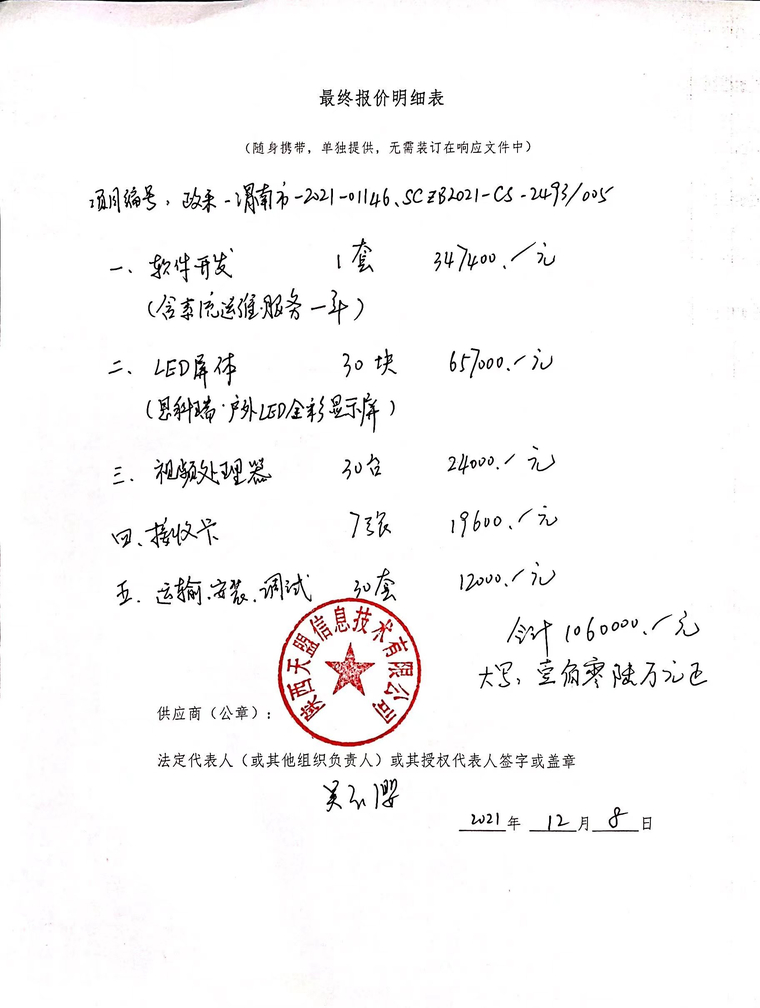 最终报价明细表
（随身携带，单独提供，无需装订在响应文件中）
项目编号：政采-渭南市-2021-01146、SCZB2021-CS-2493/005
一、软件开发 1套 347400./元
（含系统运维服务一年）
二、LED屏体 30块 657000./元
（恩科瑞·户外LED全彩显示屏）
三、视频处理器 30台 24000./元
四、接收卡 7张 19600./元
五、运输、安装、调试 30套 12000./元
合计1060000./元
大写：壹佰零陆万元正
陕西天盟信息技术有限公司
供应商（公章）：
法定代表人（或其他组织负责人）或其授权代表人签字或盖章
2021年 12月 8日